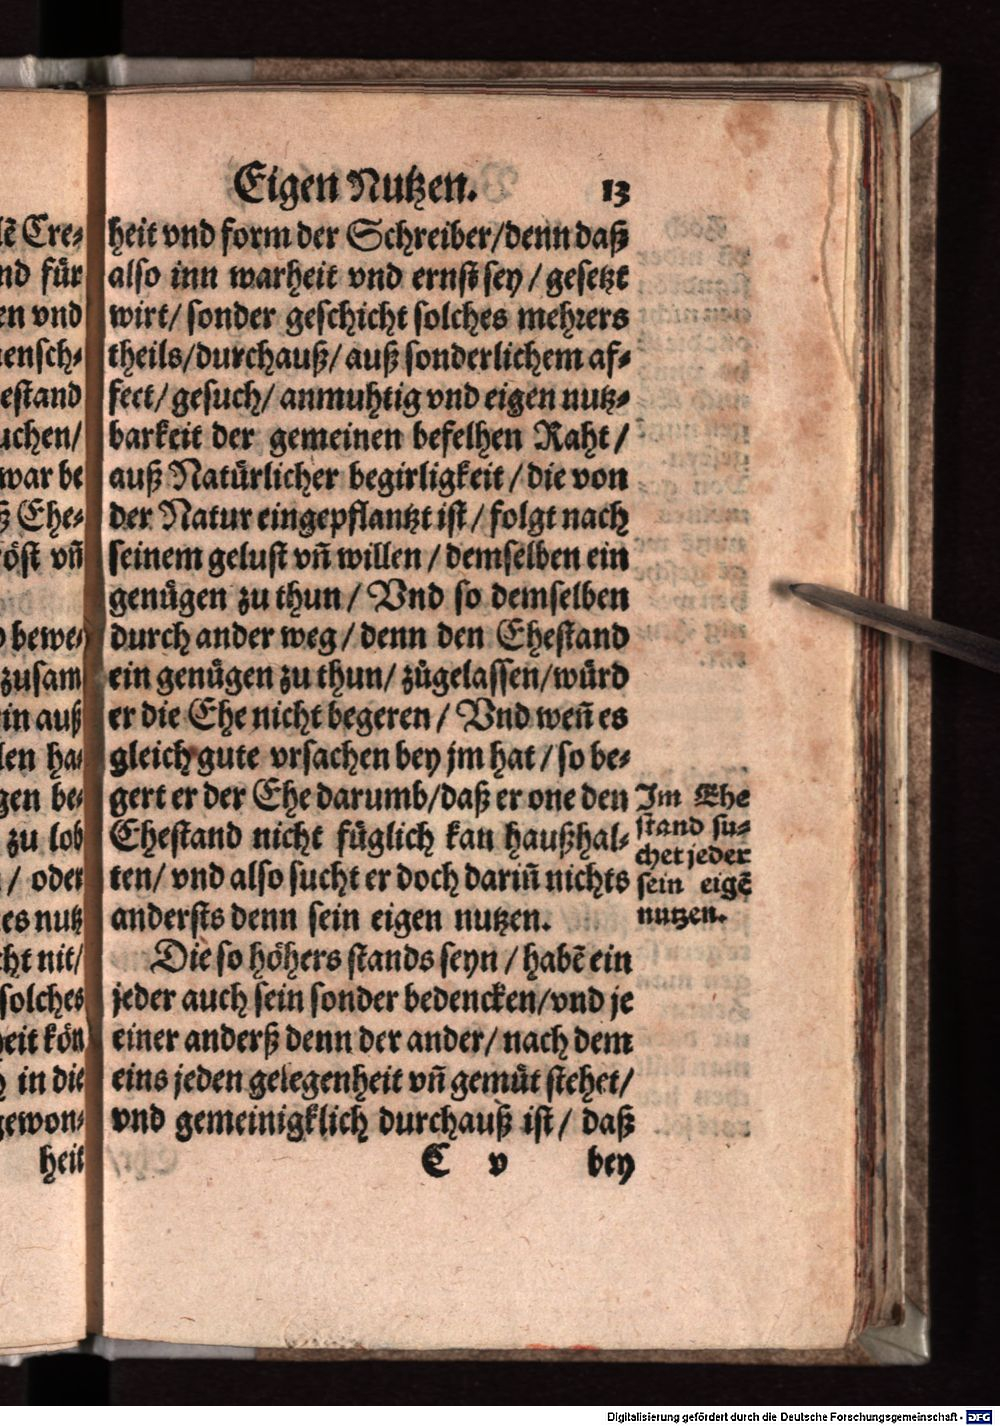 Eigen Nutzen. 13
heit vnd form der Schreiber/denn daß
also inn warheit vnd ernst sey / gesetzt
wirt/ sonder geschicht solches mehrers
theils/durchauß/ auß sonderlichem af-
fect/ gesuch/ anmuhtig vnd eigen nutz-
barkeit der gemeinen befelhen Raht /
auß Natürlicher begirligkeit / die von
der Natur eingepflantzt ist / folgt nach
seinem gelust vñ willen / demselben ein
genügen zu thun / Vnd so demselben
durch ander weg / denn den Ehestand
ein genügen zu thun/ zůgelassen/würd
er die Ehe nicht begeren / Vnd weñ es
gleich gute vrsachen bey jm hat / so be-
gert er der Ehe darumb/daß er one den
Ehestand nicht füglich kan haußhal-
ten/ vnd also sucht er doch dariñ nichts
andersts denn sein eigen nutzen.
Im Ehe
stand su-
chet jeder
sein eigẽ
nutzen.
Die so höhers stands seyn / habẽ ein
jeder auch sein sonder bedencken/vnd je
einer anderß denn der ander/ nach dem
eins jeden gelegenheit vñ gemüt stehet/
vnd gemeinigklich durchauß ist / daß
C v bey
Cre-
nd für
en vnd
ensch-
estand
uchen/
war be
Ehe-
öst vñ
bewe-
zusam
in auß
len ha-
gen be-
zu lob
/ oder
es nutz
cht nit/
solches
heit kön
in die
gewon-
heit
Digitalisierung gefördert durch die Deutsche Forschungsgemeinschaft - DFG